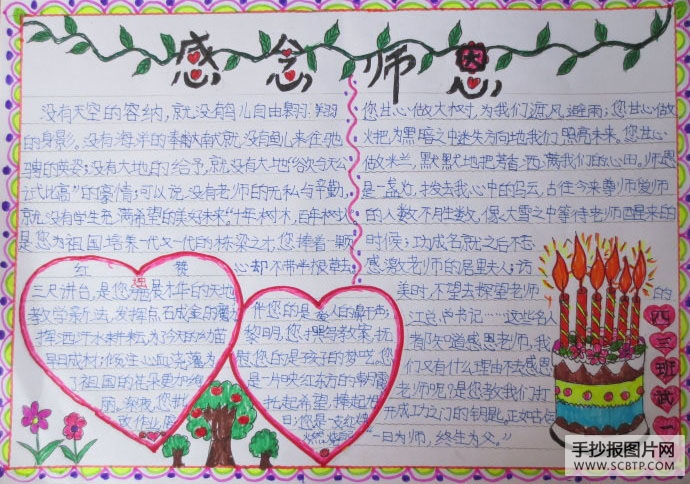 感念师恩
没有天空的容纳,就没有鸟儿自由翱翔
的身影。没有海洋的奉献就没有鱼儿来往驰
骋的英姿;没有大地的给予,就没有大地"欲与天公
试比高"的豪情;可以说没有老师的无私与辛勤,
就没有学生充满希望的美好未来。"十年树木,百年树人"
是您为祖国培养一代又一代的栋梁之才,您捧着一颗
红 心却不带半根草去
三尺讲台,是您
教学新方法,发挥点石成金的魔力
挥洒汗水耕耘,为了今天的幼苗
早日成材;倾注心血浇灌,为
了祖国的花朵更加艳
丽。
伴您的是
黎明,您撰写教案,抚
慰您的是孩子的梦呓。您
是一片映红东方的朝霞
托起希望,捧起
日;您是一支红烛
燃
您甘心做大树,为我们遮风避雨;您甘心做
火把,为黑暗之中迷失方向地我们照亮未来。您甘心
做米兰,默默地把芳香洒满我们的心田。师恩
是一盏灯,拨去我心中的乌云,古往今来尊师爱师
的人数不胜数,像大雪之中等待老师醒来的
时候;功成名就之后不忘
感激老师的居里夫人;访
美时,不望去探望老师的
江总书记……这些名人
都知道感恩老师,我
们又有什么理由不去感恩
老师呢?是您教我们打
开成功之门的钥匙,正如古语
"一日为师,终生为父。"
四三班试一
手抄报图片网
WWW.SCBTP.COM